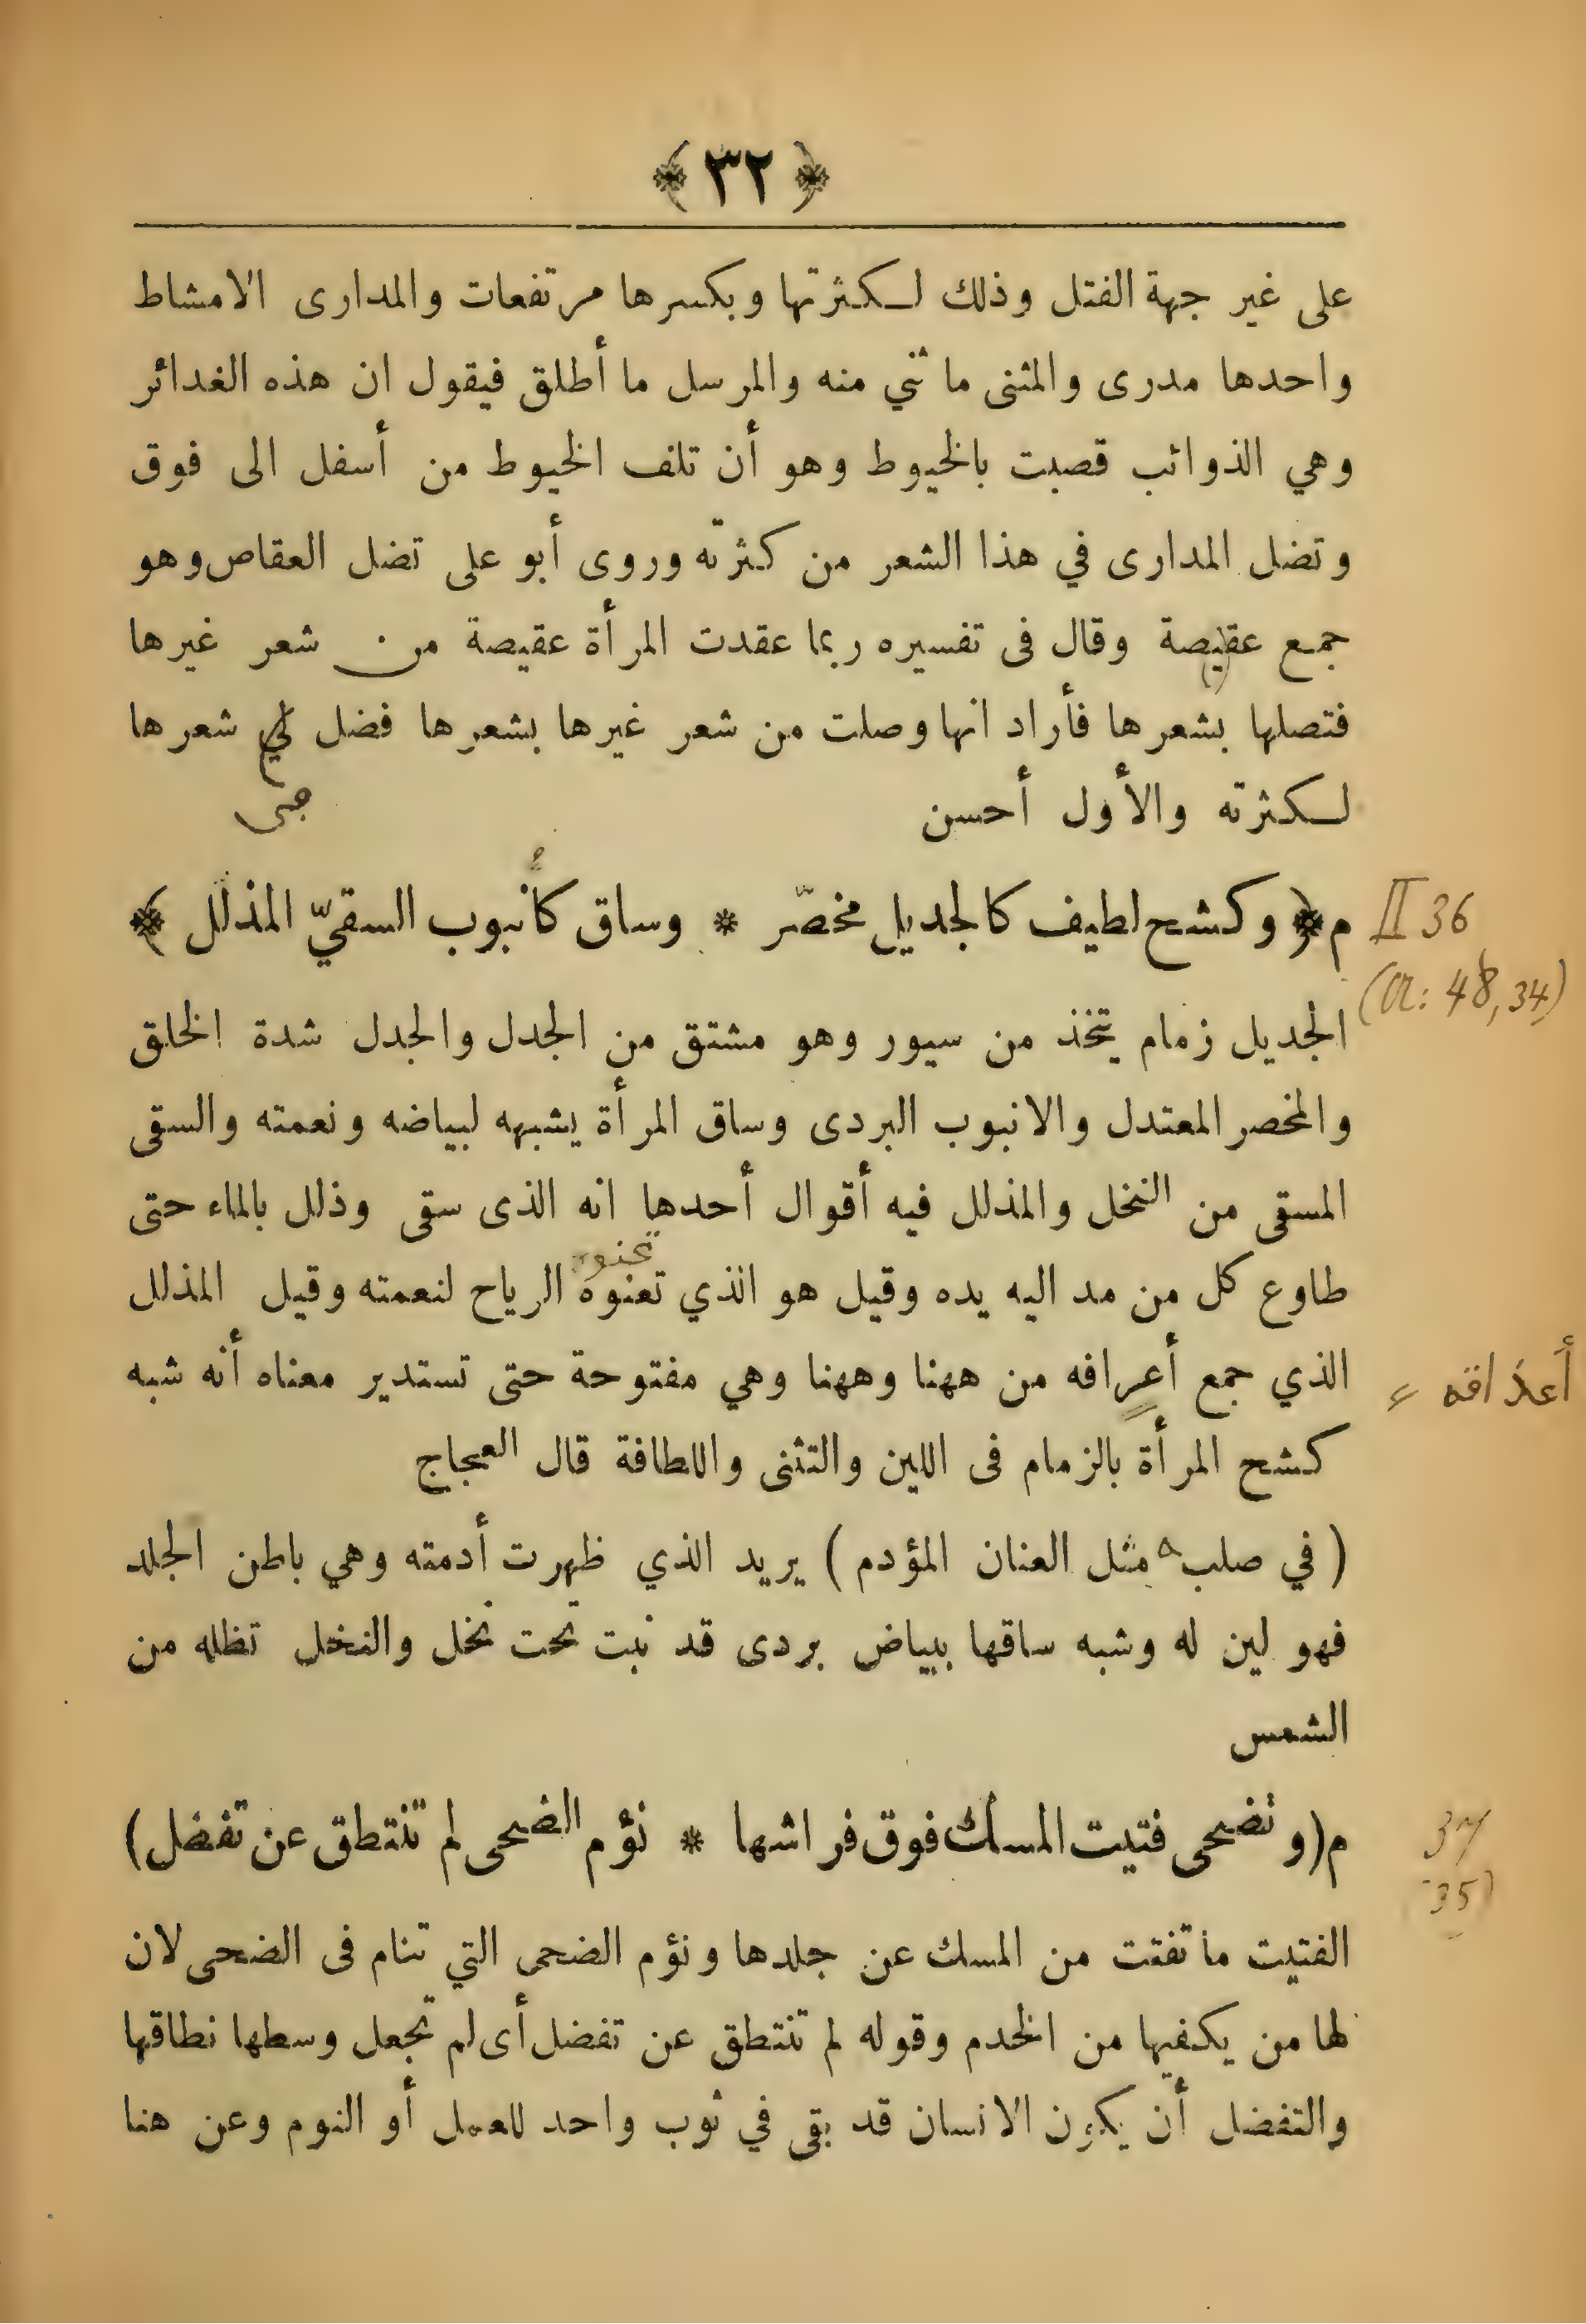 ﴿ ٣٢ ﴾
على غير جهة الفتل وذلك لكثرتها وبكسرها مرتفعات والمدارى الامشاط
واحدها مدرى والمثنى ما ثني منه والمرسل ما أطلق فيقول ان هذه الغدائر
وهي الذوائب قصبت بالخيوط وهو أن تلف الخيوط من أسفل الى فوق
وتضل المدارى في هذا الشعر من كثرته وروى أبو على تضل العقاص وهو
جمع عقيصة وقال فى تفسيره ربما عقدت المرأة عقيصة من شعر غيرها
فتصلها بشعرها فأراد انها وصلت من شعر غيرها بشعرها فضل في شعرها
لكثرته والأول أحسن
م﴿ وكشح لطيف كالجديل مخصّر * وساق كأنبوب السقيّ المذلل ﴾
II 36
(Cl: 48, 34)
الجديل زمام يتخذ من سيور وهو مشتق من الجدل والجدل شدة الخلق
والمخصر المعتدل والانبوب البردى وساق المرأة يشبهه لبياضه ونعمته والسقى
المسقى من النخل والمذلل فيه أقوال أحدها انه الذى سقى وذلل بالماء حتى
طاوع كل من مد اليه يده وقيل هو الذي تعنوه الرياح لنعمته وقيل المذلل
الذي جمع أعرافه من ههنا وههنا وهي مفتوحة حتى تستدير معناه أنه شبه
أعذاقه
كشح المرأة بالزمام فى اللين والتثنى واللطافة قال العجاج
( في صلب مثل العنان المؤدم ) يريد الذي ظهرت أدمته وهي باطن الجلد
فهو لين له وشبه ساقها ببياض بردى قد نبت تحت نخل والنخل تظله من
الشمس
م(وتضحى فتيت المسك فوق فراشها * نؤم الضحى لم تنتطق عن تفضل)
37
35)
الفتيت ما تفتت من المسك عن جلدها ونؤم الضحى التي تنام فى الضحى لان
لها من يكفيها من الخدم وقوله لم تنتطق عن تفضل أى لم تجعل وسطها نطاقها
والتفضل أن يكون الانسان قد بقى في ثوب واحد للعمل أو النوم وعن هنا